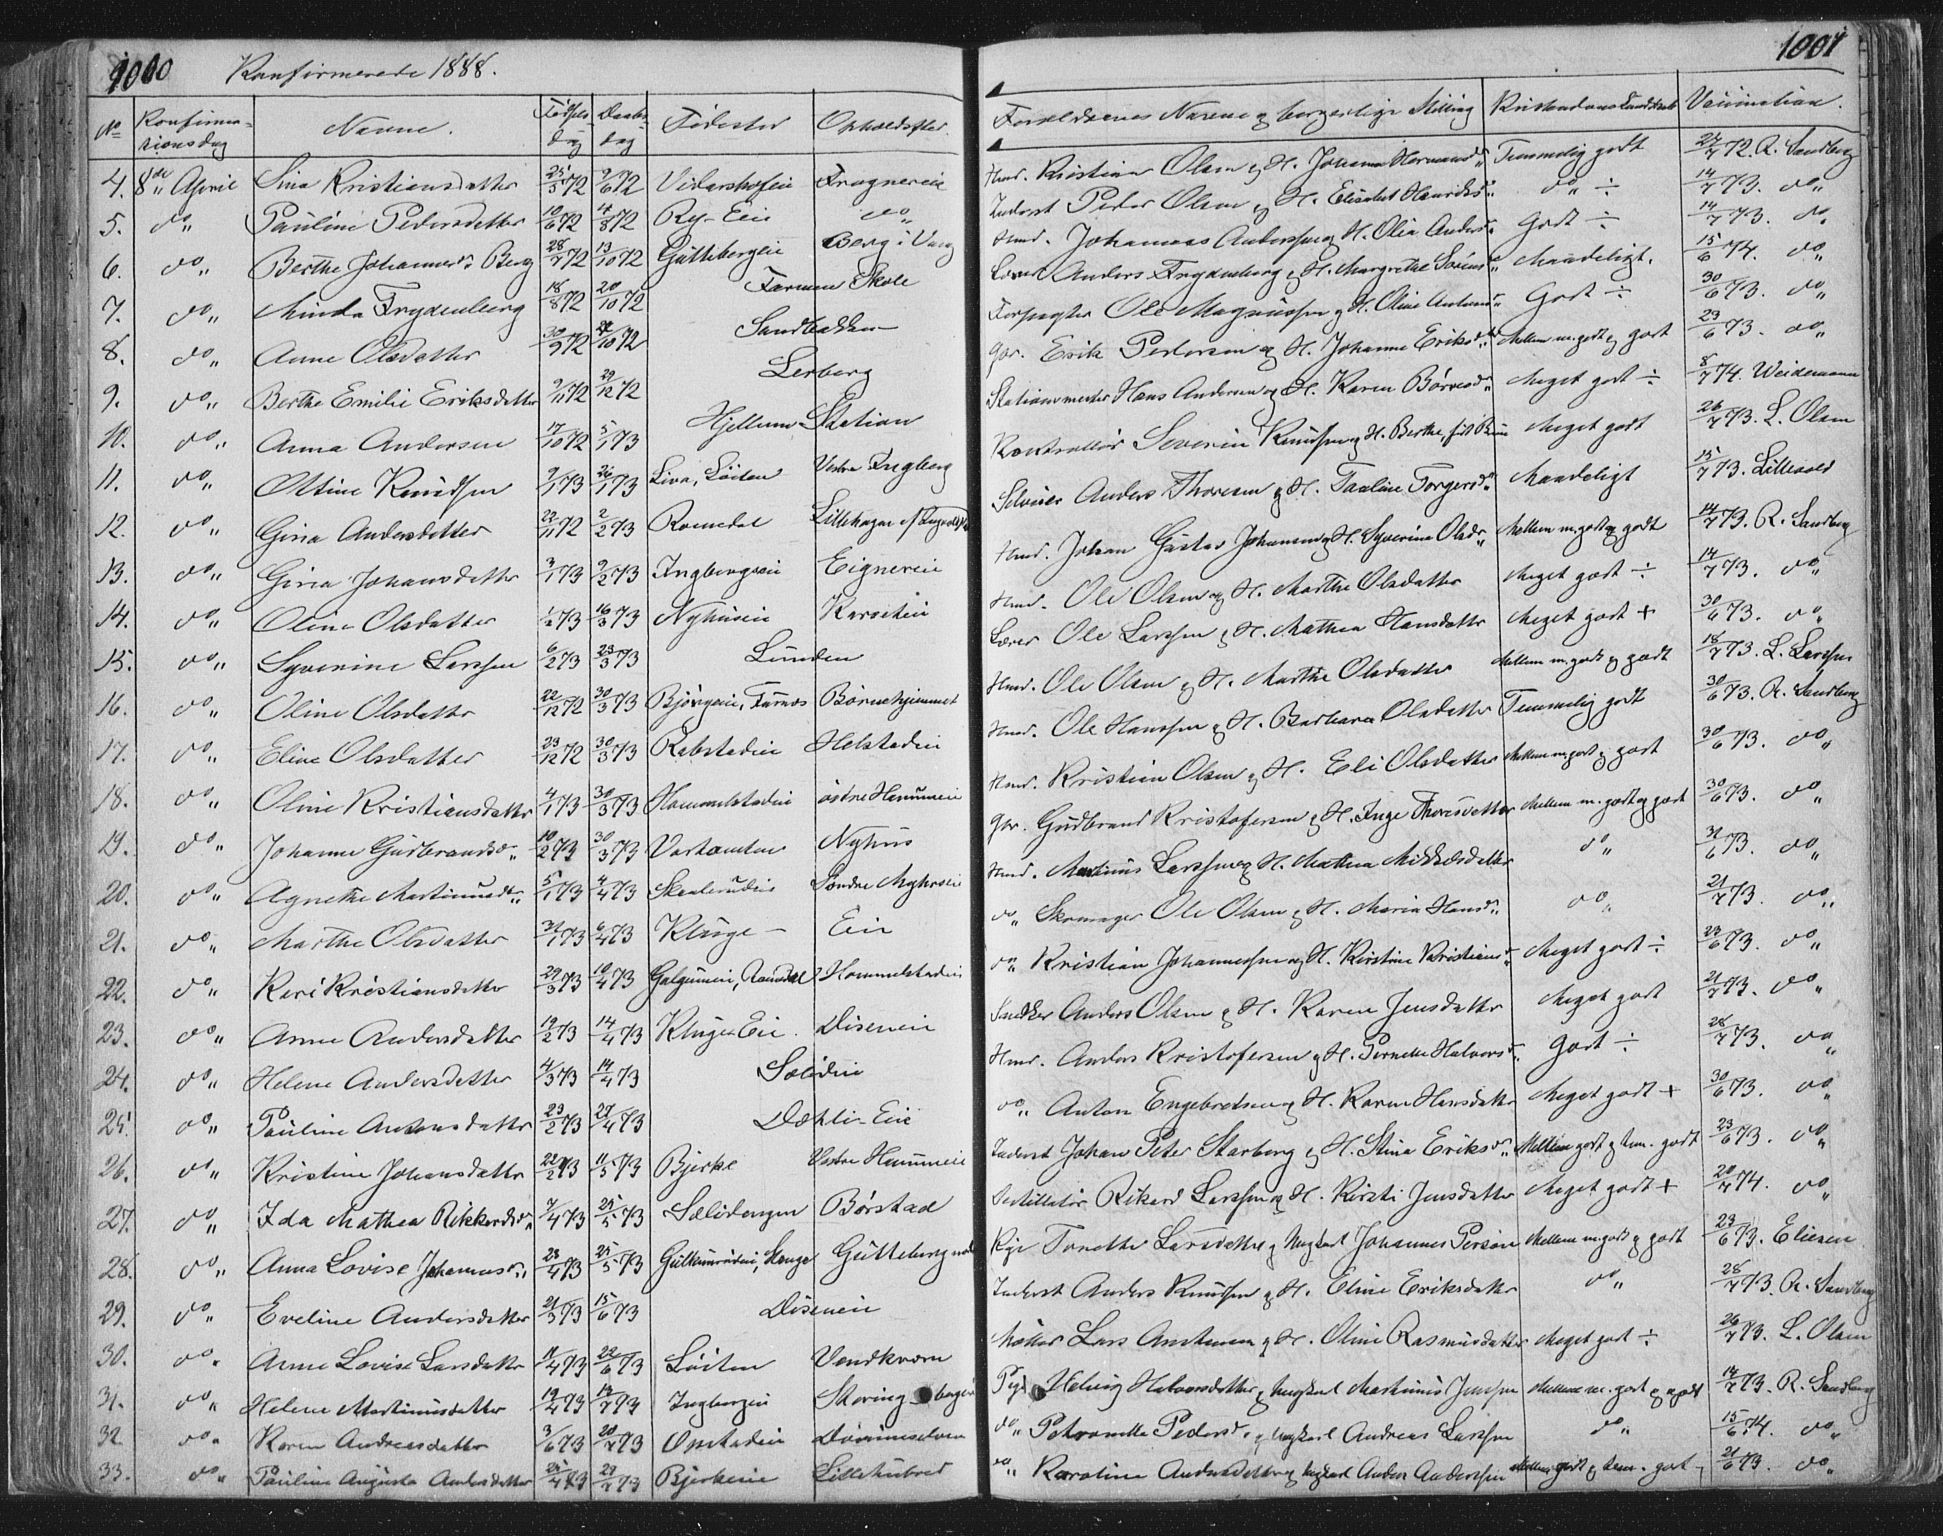 1000 Konfirmerede 1888.
No Konfirmationsdag Navne. Fødselsdag Daabsdag Fødested Opholdssted
4. 8de April Lina Kristiansdatter 25/5 72 9/6 72 Vidarshofeie Frognereie
5. do„ Pauline Pedersdatter 10/6 72 4/8 72 Ry-Eie do„
6. do„ Berthe Johannesd. Berg 28/7 72 13/10 72 Guttebergeie Berg i Vang
7. do„ Minda Frydenberg 18/8 72 20/10 72 Farmen Skole
8. do„ Anne Olsdatter 30/9 72 /10 72 Sandbakken
9. do„ Berthe Emilie Eriksdatter 9/11 72 29/12 72 Lerberg
10. do„ Anna Andersen 17/10 72 5/1 73 Hjellum Station
11. do„ Ottine Knudsen 9/1 73 26/1 73 Løiten Vestre Ingberg
12. do„ Gina Andersdatter 22/11 72 2/2 73 Romedal Lillehagen
13. do„ Gina Johansdatter 3/1 73 9/2 73 Ingbergseie Eignereie
14. do„ Oline Olsdatter 1/2 73 16/3 73 Nyhuseie
15. do„ Syverine Larsen 6/2 73 23/3 73 Lunden
16. do„ Oline Olsdatter 22/12 72 30/3 73 Bjørgeeie, Furnes Børnehjemmet
17. do„ Eline Olsdatter 23/12 72 30/3 73 Rabstadeie Helstadeie
18. do„ Oline Kristiansdatter 4/1 73 30/3 73 Hommelstadeie østre Hemmeie
19. do„ Johanne Gudbrandsd„ 10/2 73 30/3 73 Nyhus
20. do„ Agnethe Martinusd„ 5/1 73 4/4 73 Søndre
21. do„ Marthe Olsdatter 31/1 73 6/4 73 Kluge - Eie
22. do„ Kari Kristiansdatter 29/3 73 10/4 73 Galguneie, Romedal Hommelstadeie
23. do„ Anne Andersdatter 19/2 73 14/4 73 Kluge Eie. Diseneie
24. do„ Helene Andersdatter 4/3 73 14/4 73 Sælideie
25. do„ Pauline Antonsdatter 23/2 73 27/4 73 Dæhli-Eie
26. do„ Kristine Johansdatter 22/2 73 11/5 73 Bjerke Vestre Hemmeie
27. do„ Ida Mathea Rikkardsd„ 7/4 73 25/5 73 Sælidengen Børstad
28. do„ Anna Lovise Johannesd„ 23/4 73 25/5 73 Stange Gutteberg
29. do„ Eveline Andersdatter 21/3 73 15/6 73 Diseneie
30. do„ Anne Lovise Larsdatter 11/4 73 22/6 73 Løiten Vendkværn
31. do„ Helene Martinusdatter 19/4 73 /7 73 Ingbergeie
32. do„ Karen Andreasdatter 3/6 73 20/7 73 Onstadeie
33. do„ Pauline Augusta Andersdatter 25/4 73 27/7 73 Bjerkeeie
1001
Forældrenes Navne og borgerlige Stilling Kristendomskundskab Vaccination.
Hmd. Kristian Olsen og H. Johanne Hermansd„ Temmelig godt 24/7 72. R. Sandberg
Inderst Peder Olsen og H. Elisabet Henriksd„ do„ ÷ 14/7 73. do„
Hmd. Johannes Andersen og H. Olia Andersd„ Godt ÷ 14/7 73. do„
Lærer Anders Frydenberg og H. Margrethe Sørensd„ Maadeligt. 15/6 74. do„
Forpagter Ole Magnussen og H. Oline Antonsd„ Godt ÷ 30/6 73. do„
Gør. Erik Pedersen og H. Johanne Eriksd„ Mellem m. godt og godt 23/6 73. do„
Stationsmester Hans Andersen og H. Karen Meget godt ÷ 8/7 74. Weidemann
Kontrollør Severin Knudsen og H. Berthe, født Meget godt 26/7 73. L. Olsen
Selveier Anders Thoresen og H. Pauline Torgersd„ Maadeligt 15/7 73. Lillevold
Hmd. Johan Gustav Johansen og H. Syverine Olsd„ Mellem m. godt og godt 14/7 73. R. Sandberg
Hmd. Ole Olsen og H. Marthe Olsdatter Meget godt ÷ 14/7 73. do„
Lærer Ole Larsen og H. Mathea Hansdatter Meget godt + 30/6 73. do„
Hmd. Ole Olsen og H. Marthe Olsdatter Mellem m. godt og godt 18/7 73. L. Larsen
Hmd. Ole Hanssen og H. Barbara Olsdatter Temmelig godt 30/6 73. R. Sandberg
Hmd. Kristian Olsen og H. Eli Olsdatter Mellem m. godt og godt 30/6 73. do„
Gør. Gudbrand Kristofersen og H. Inge Thoresdatter Mellem m. godt og godt 30/6 73. do„
Hmd. Martinus Larsen og H. Mathea Mikkelsdatter do„ /6 73. do„
do„ Skomager Ole Olsen og H. Maria Hansd„ do„ 21/7 73. do„
do„ Kristian Johannessen og H. Kirstine Kristiansd„ Meget godt ÷ 23/6 73. do„
Snedker Anders Olsen og H. Karen Jensdatter Meget godt 21/7 73. do„
Hmd. Anders Kristofersen og H. Pernille Halvorsd„ Godt ÷ 28/7 73. do„
do„ Anton Engebretsen og H. Karen Hansdatter Meget godt + 30/6 73. do„
Inderst Johan Peter Starberg og H. Stina Eriksd„ Mellem godt og tem. godt 23/6 73. do„
Destillatør Rikard Larsen og H. Kirsti Jensdatter Meget godt + 20/7 74. do„
Pige Tonette Larsdatter og Ungkarl Johannes Persen Mellem m. godt og godt 23/6 73. Eliesen
Inderst Anders Knudsen og H. Eline Eriksdatter do„ 28/7 73. R. Sandberg
Møller Lars Amundsen og H. Oline Rasmusdatter Meget godt ÷ 26/7 73. L. Olsen
Pige Helvig Halvorsdatter og Ungkarl Martinus Jensen Mellem m. godt og godt 14/7 73. R. Sandberg
do„ Petronelle Pedersd. og Ungkarl Andreas Larsen do„ 15/6 74. do„
do„ Karoline Andersdatter og Ungkarl Anders Andersen Mellem godt og tem. godt 21/6 73. do„